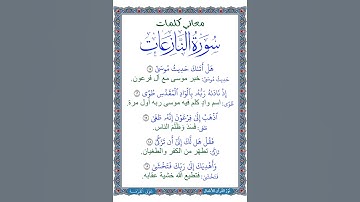 معاني كلمات
سُورَةُ النَّازِعَاتِ
هَلْ أَتَىٰكَ حَدِيثُ مُوسَىٰٓ ١٥
حَدِيثُ مُوسَىٰ: خبر موسى مع آل فرعون.
إِذْ نَادَىٰهُ رَبُّهُۥ بِٱلْوَادِ ٱلْمُقَدَّسِ طُوًى ١٦
طُوًى: اسم وادٍ كلم فيه موسى ربه أول مرة.
ٱذْهَبْ إِلَىٰ فِرْعَوْنَ إِنَّهُۥ طَغَىٰ ١٧
طَغَىٰ: فسَدَ وظَلَمَ الناس.
فَقُلْ هَل لَّكَ إِلَىٰٓ أَن تَزَكَّىٰ ١٨
تَزَكَّىٰ: تطهّر من الكفر والطغيان.
وَأَهْدِيَكَ إِلَىٰ رَبِّكَ فَتَخْشَىٰ ١٩
فَتَخْشَىٰ: فتطيع الله خشية عقابه.